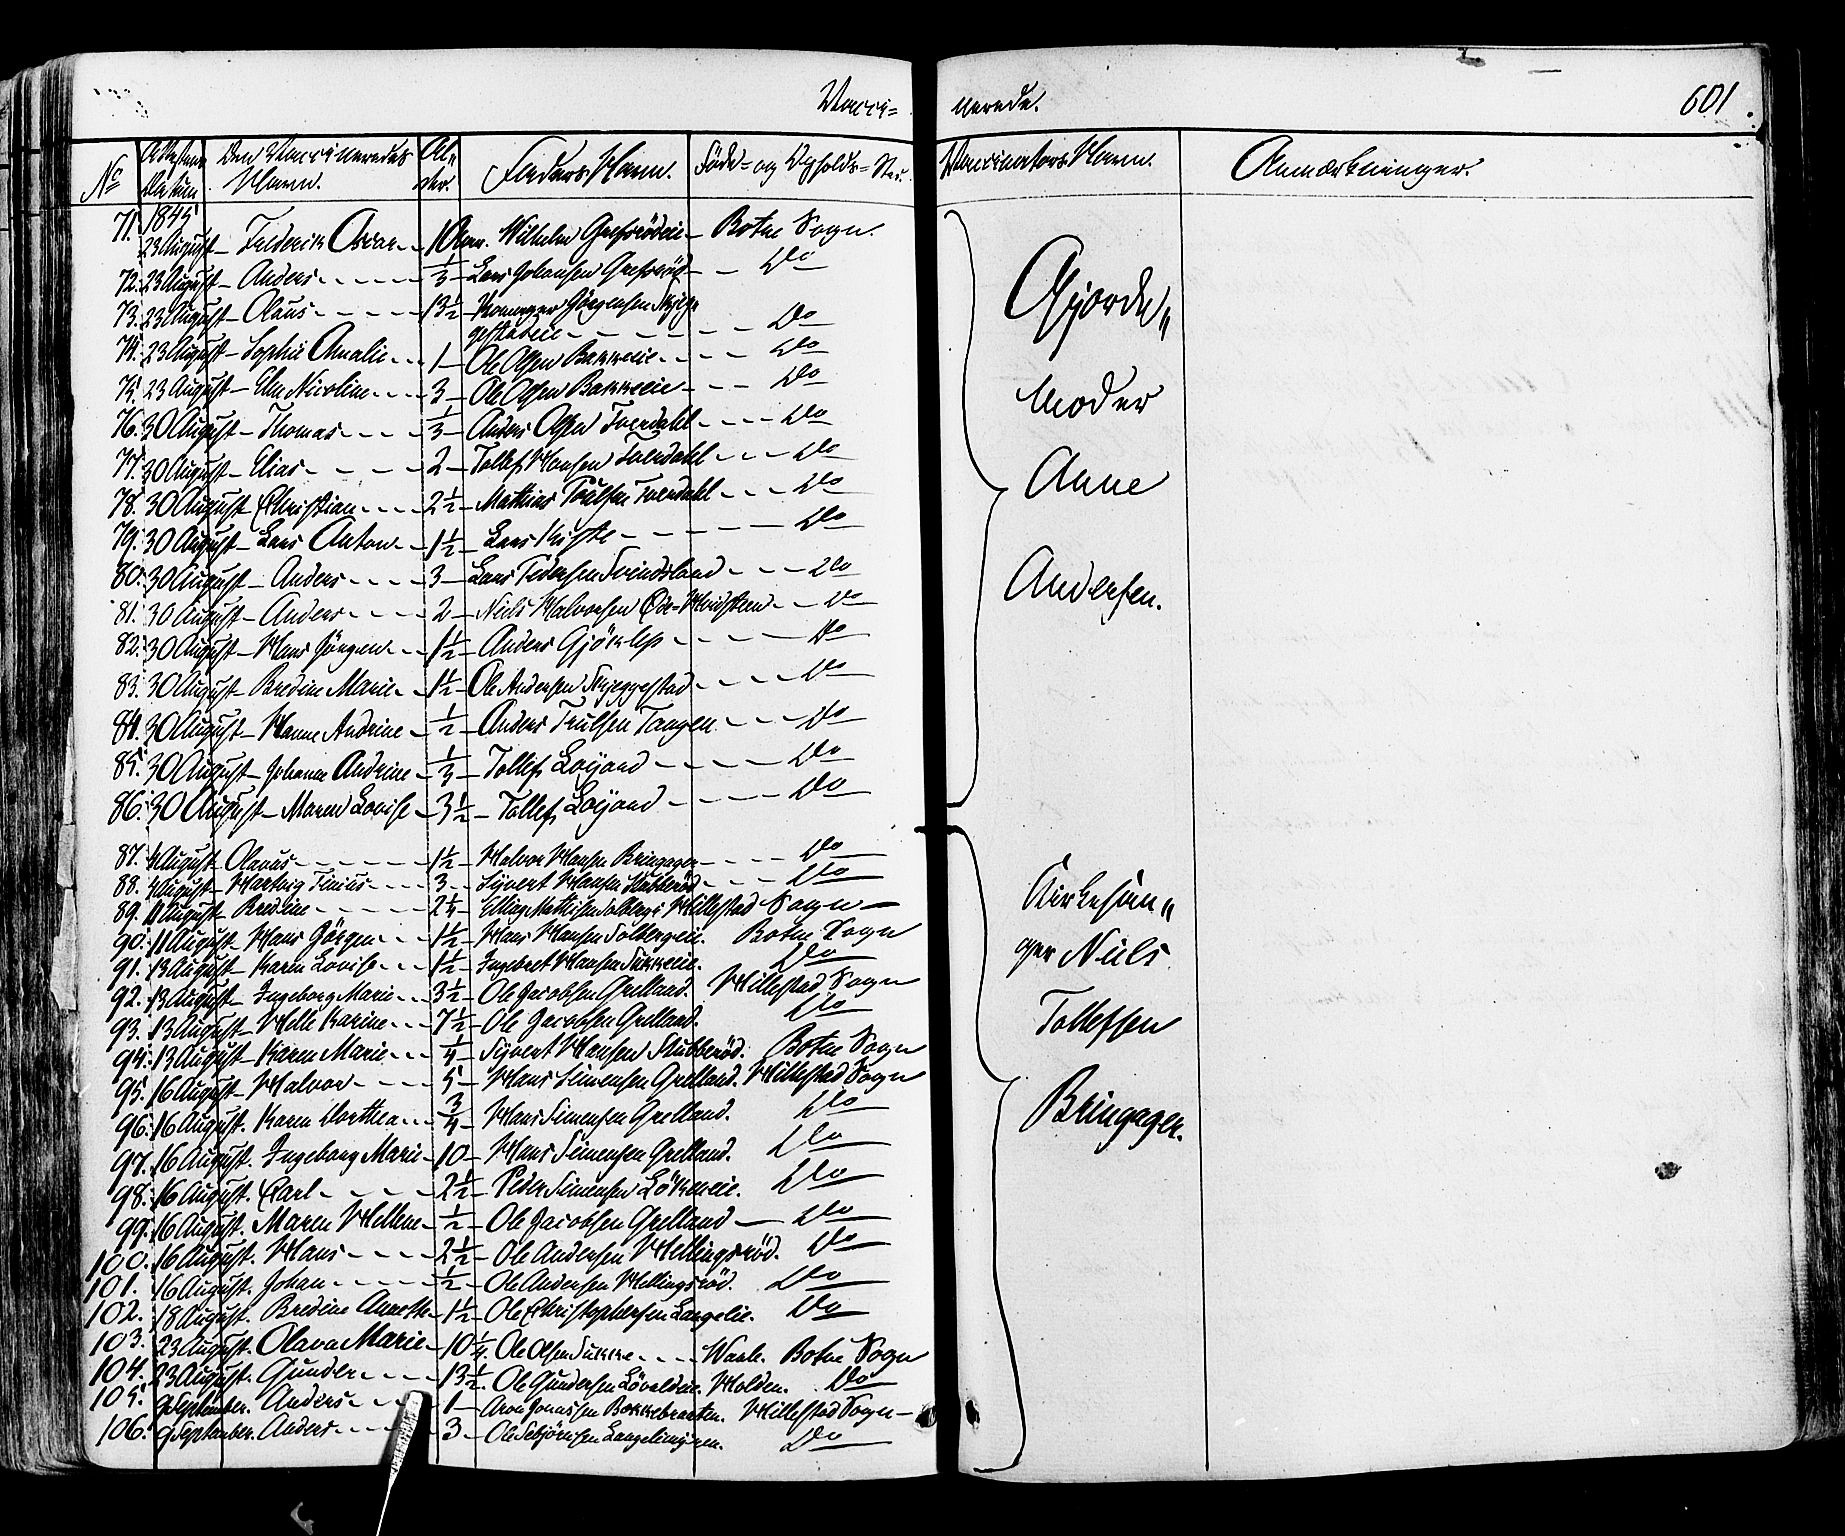 Vacci= nerede. 601.
No Attestens Datum Den Vaccineredes Navn. Al= der. Faders Navn. Föde= og Opholds= Sted. Vaccinators Navn. Anmærkninger.
1845
71. 23 August – Frederik Oscar – 10 Aar. Wilhelm Grefsrödeie – Botne Sogn.
72. 23 August – Anders – 1/3 – Lars Johansen Grefsröd – Do
73. 23 August – Olaus – 13 1/2 – Jörgensen Skjeg=
gestadeie – Do
74. 23 August – Sophie Amalie – 1 – Ole Olsen Bakkeeie – Do
75. 23 August – Elen Nicoline – 3 – Ole Olsen Bakkeeie – Do
76. 30 August – Thomas – 1/3 – Anders Olsen Tvendahl – Do
77. 30 August – Elias – 2 – Tollef Hansen Tvendahl – Do
78. 30 August – Christian – 2 1/2 – Mathias Trulsen Tvendahl – Do
79. 30 August – Lars Anton – 1 1/2 – Lars – Do
80. 30 August – Anders – 3 – Lars Pedersen Svendsland – Do
81. 30 August – Anders – 2 – Niels Halvorsen Hvidsteen – Do
82. 30 August – Hans Jörgen – 1 1/2 – Anders Gjöklep – Do
83. 30 August – Bredine Marie – 1 1/2 – Ole Andersen Skjeggestad – Do
84. 30 August – Hanne Andrine – 1/2 – Anders Trulsen Tangen – Do
85. 30 August – Johanne Andrine – 1/3 – Tollef Löijord – Do
86. 30 August – Maren Lovise – 3 1/2 – Tollef Löijord – Do
87. 4 August – Olaus – 1 1/2 – Halvor Hansen Bringager – Do
88. 4 August – Hartvig Tinius – 3 – Syvert Hansen Stubberöd – Do
89. 11 August – Bredine – 2 1/4 – Elling Mathisen Solbergs Hillestad Sogn –
90. 11 August – Hans Jörgen – 1 1/2 – Hans Hansen Solbergeie. Botne Sogn
91. 13 August – Karen Lovise – 1 1/2 – Ingebret Hansen Sukkeeie. Do
92. 13 August – Ingeborg Marie – 3 1/2 – Ole Jacobsen Grelland. Hillestad Sogn
93. 13 August – Helle Karine – 7 1/2 – Ole Jacobsen Grelland. Do
94. 13 August – Karen Marie – 1/4 – Syvert Hansen Stubberöd. Botne Sogn
95. 16 August – Halvor – 5 – Hans Simensen Grelland. Hillestad Sogn
96. 16 August. Karen Dorthea – 3/4 – Hans Simensen Grelland. Do
97. 16 August. Ingeborg Marie – 10 – Hans Simensen Grelland. Do
98. 16 August. Carl – 2 1/2 – Peder Simensen Lökeneie. Do
99. 16 August. Maren Hellene – 1/2 – Ole Jacobsen Grelland – Do
100. 16 August. Hans – 2 1/2 – Ole Andersen Hellingsröd. Do
101. 16 August. Johan – 1/2 – Ole Andersen Hellingsröd. Do
102. 18 August. Bredine Annette – 1 1/2 – Ole Christophersen Langelie. Do
103. 23 August. Olava Marie – 10 1/4. Ole Olsen Sukke – Waale. Botne Sogn
104. 23 August. Gunder – 13 1/2. Ole Gundersen Lövaldeie. Holden. Do
105. 9 September. Anders – 1 – Aron Jonassen Bakkebraaten. Hillestad Sogn –
106. 9 September. Anders – 3 – Ole Sebjörnsen Do
Gjorde„
moder
Anne
Andersen.
Kirkesan„
ger Niels
Tollefsen
Bringager.